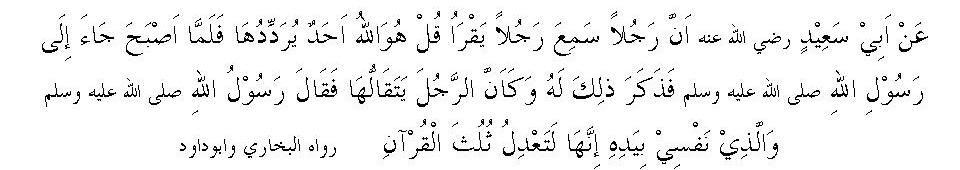 عَنْ اَبِيْ سَعِيْدٍ رضي الله عنه اَنَّ رَجُلاً سَمِعَ رَجُلاً يَقْرَاُ قُلْ هُوَاللهُ اَحَدٌ يُرَدِّدُهَا فَلَمَّا اَصْبَحَ جَاءَ إِلَى
رَسُوْلِ اللهِ صلى الله عليه وسلم فَذَكَرَ ذلِكَ لَهُ وَكَاَنَّ الرَّجُلَ يَتَقَالُّهَا فَقَالَ رَسُوْلُ اللهِ صلى الله عليه وسلم
وَالَّذِيْ نَفْسِيْ بِيَدِهِ إِنَّهَا لَتَعْدِلُ ثُلُثَ الْقُرْآنِ رواه البخاري وابوداود